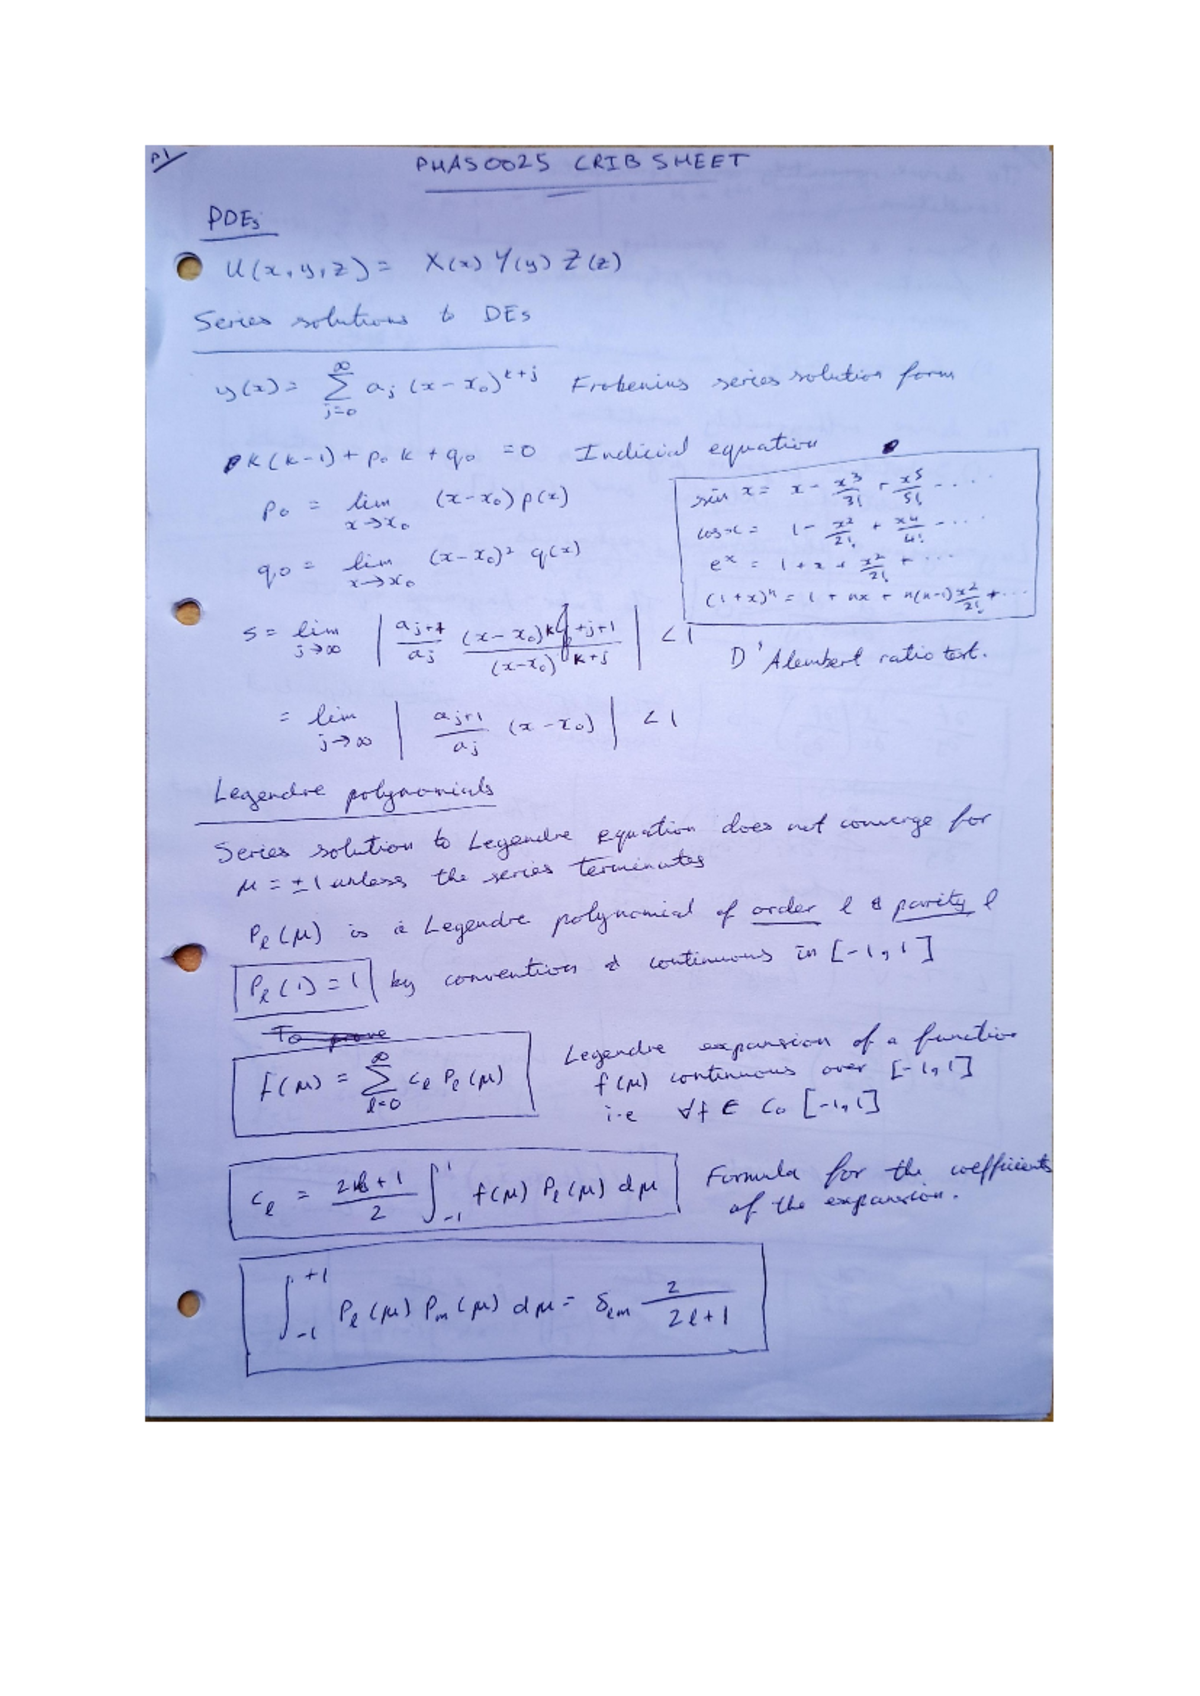 P1
PHAS0025 CRIB SHEET
PDEs
U(x,y,z) = X(x) Y(y) Z(z)
Series solutions to DEs
y(x) = ∑_{j=0}^{∞} a_j (x-x_0)^{k+j} Frobenius series solution form
k(k-1) + p_0 k + q_0 = 0 Indicial equation
p_0 = lim_{x→x_0} (x-x_0) p(x)
q_0 = lim_{x→x_0} (x-x_0)² q(x)
sin x = x - x³/3! + x⁵/5! - ....
cos x = 1 - x²/2! + x⁴/4! - ....
e^x = 1 + x + x²/2! + ...
(1+x)^n = 1 + nx + n(n-1) x²/2! + ...
S = lim_{j→∞} | a_{j+1}/a_j (x-x_0)^{k+j+1}/(x-x_0)^{k+j} | < 1
D'Alembert ratio test.
= lim_{j→∞} | a_{j+1}/a_j (x-x_0) | < 1
Legendre polynomials
Series solution to Legendre equation does not converge for
μ = ±1 unless the series terminates
P_l(μ) is a Legendre polynomial of order l & parity l
P_l(1) = 1 by convention & continuous in [-1, 1]
To prove
f(μ) = ∑_{l=0}^{∞} c_l P_l(μ)
Legendre expansion of a function
f(μ) continuous over [-1, 1]
i.e ∀f ∈ C_0 [-1, 1]
c_l = (2l+1)/2 ∫_{-1}^{1} f(μ) P_l(μ) dμ
Formula for the coefficients
of the expansion.
∫_{-1}^{+1} P_l(μ) P_m(μ) dμ = δ_{lm} 2/(2l+1)